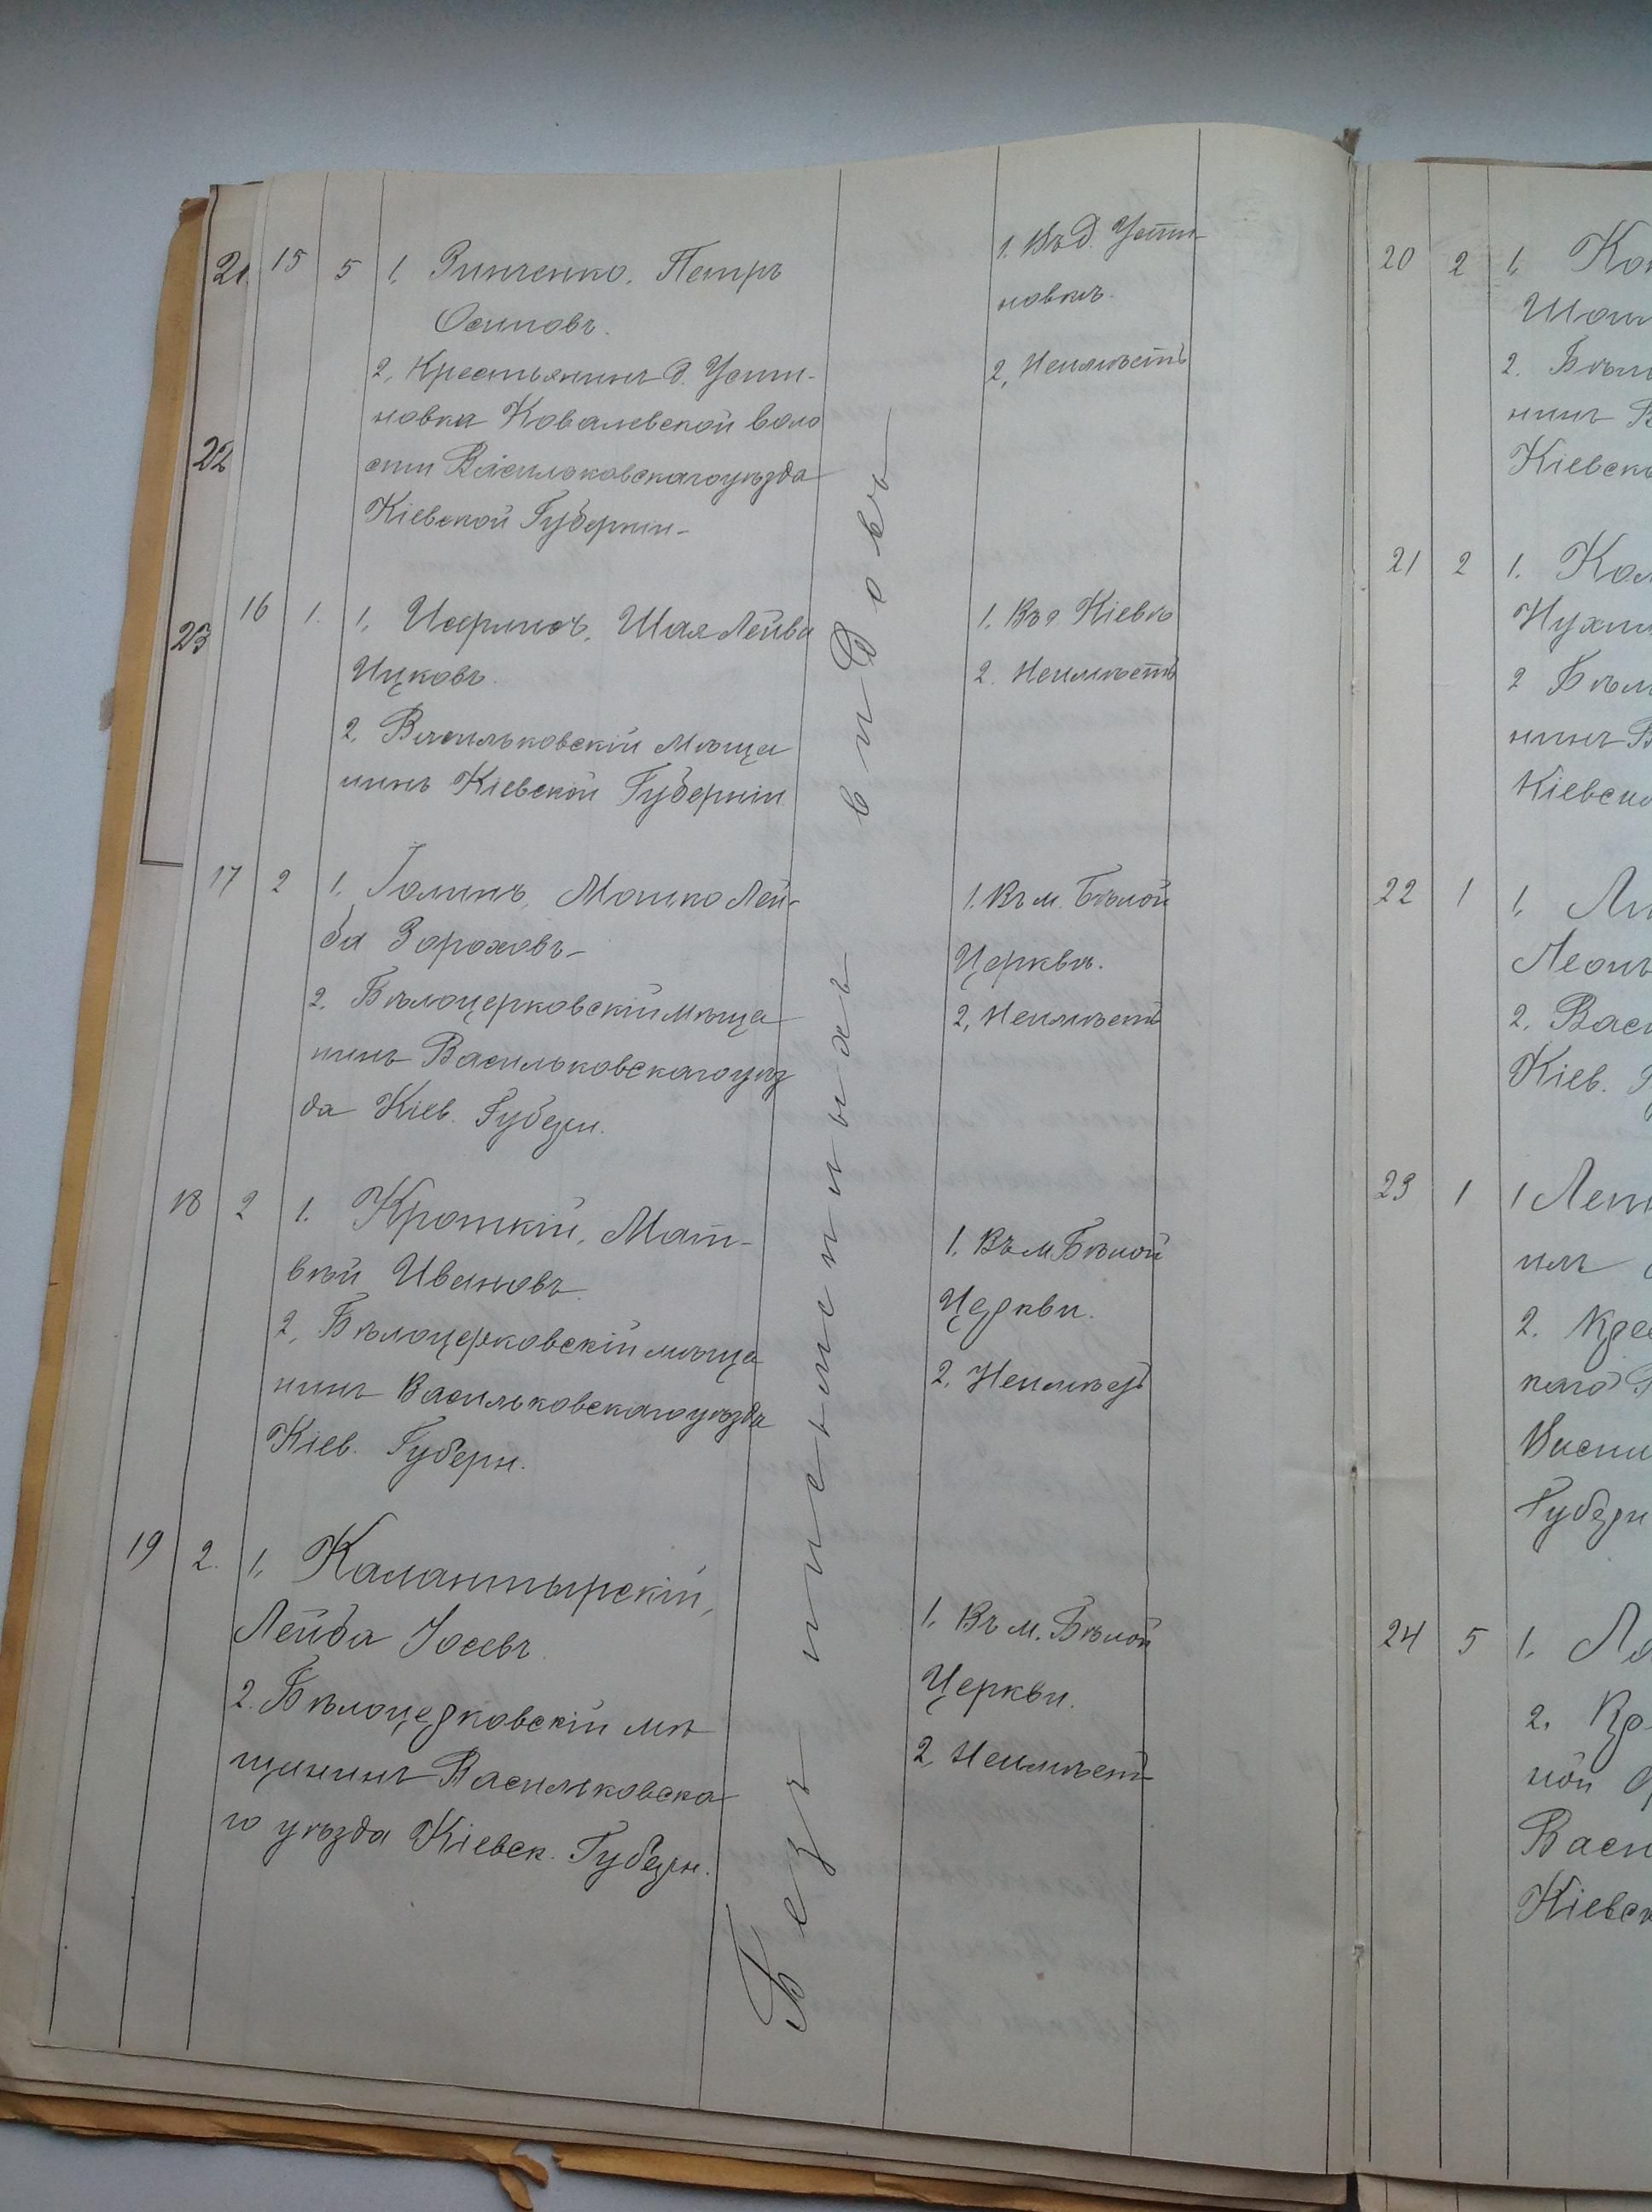 21
22
23
15 5 1, Зинченко, Петръ
Осиповъ.
2, Крестьянинъ д. Усти-
новка Ковалевской воло
сти Васильковскаго уѣзда
Кіевской Губерніи-
1. Въ д. Усти-
новкѣ.
2, Неимѣетъ
16 1. 1, Шая Лейба
Ицковъ.
2, Васильковскій мѣща
нинъ Кіевской Губерніи
1. Въ г. Кіевѣ
2. Неимѣетъ
17 2 1, Голинъ, Мошко Лей-
ба Зороховъ-
2, Бѣлоцерковскій мѣща
нинъ Васильковскаго уѣз
да Кіев. Губерн.
1. Въ м. Бѣлой
Церкви.
2, Неимѣетъ
18 2 1. Кроткій, Мат-
вѣй Ивановъ.
2, Бѣлоцерковскій мѣща
нинъ Васильковскаго уѣзда
Кіев. Губерн.
1, Въ м. Бѣлой
Церкви.
2, Неимѣетъ
19 2. 1, Калантырскій,
Лейба Іосевъ.
2. Бѣлоцерковскій мѣ
щанинъ Васильковска
го уѣзда Кіевск. Губерн.
1, Въ м. Бѣлой
Церкви.
2, Неимѣетъ
Безъ письменныхъ видовъ
20 2 1,
2.
нинъ
21 2 1.
2
нинъ
22 1 1,
2,
Кіев.
23 1 1
2.
24 5 1.
2.
ной